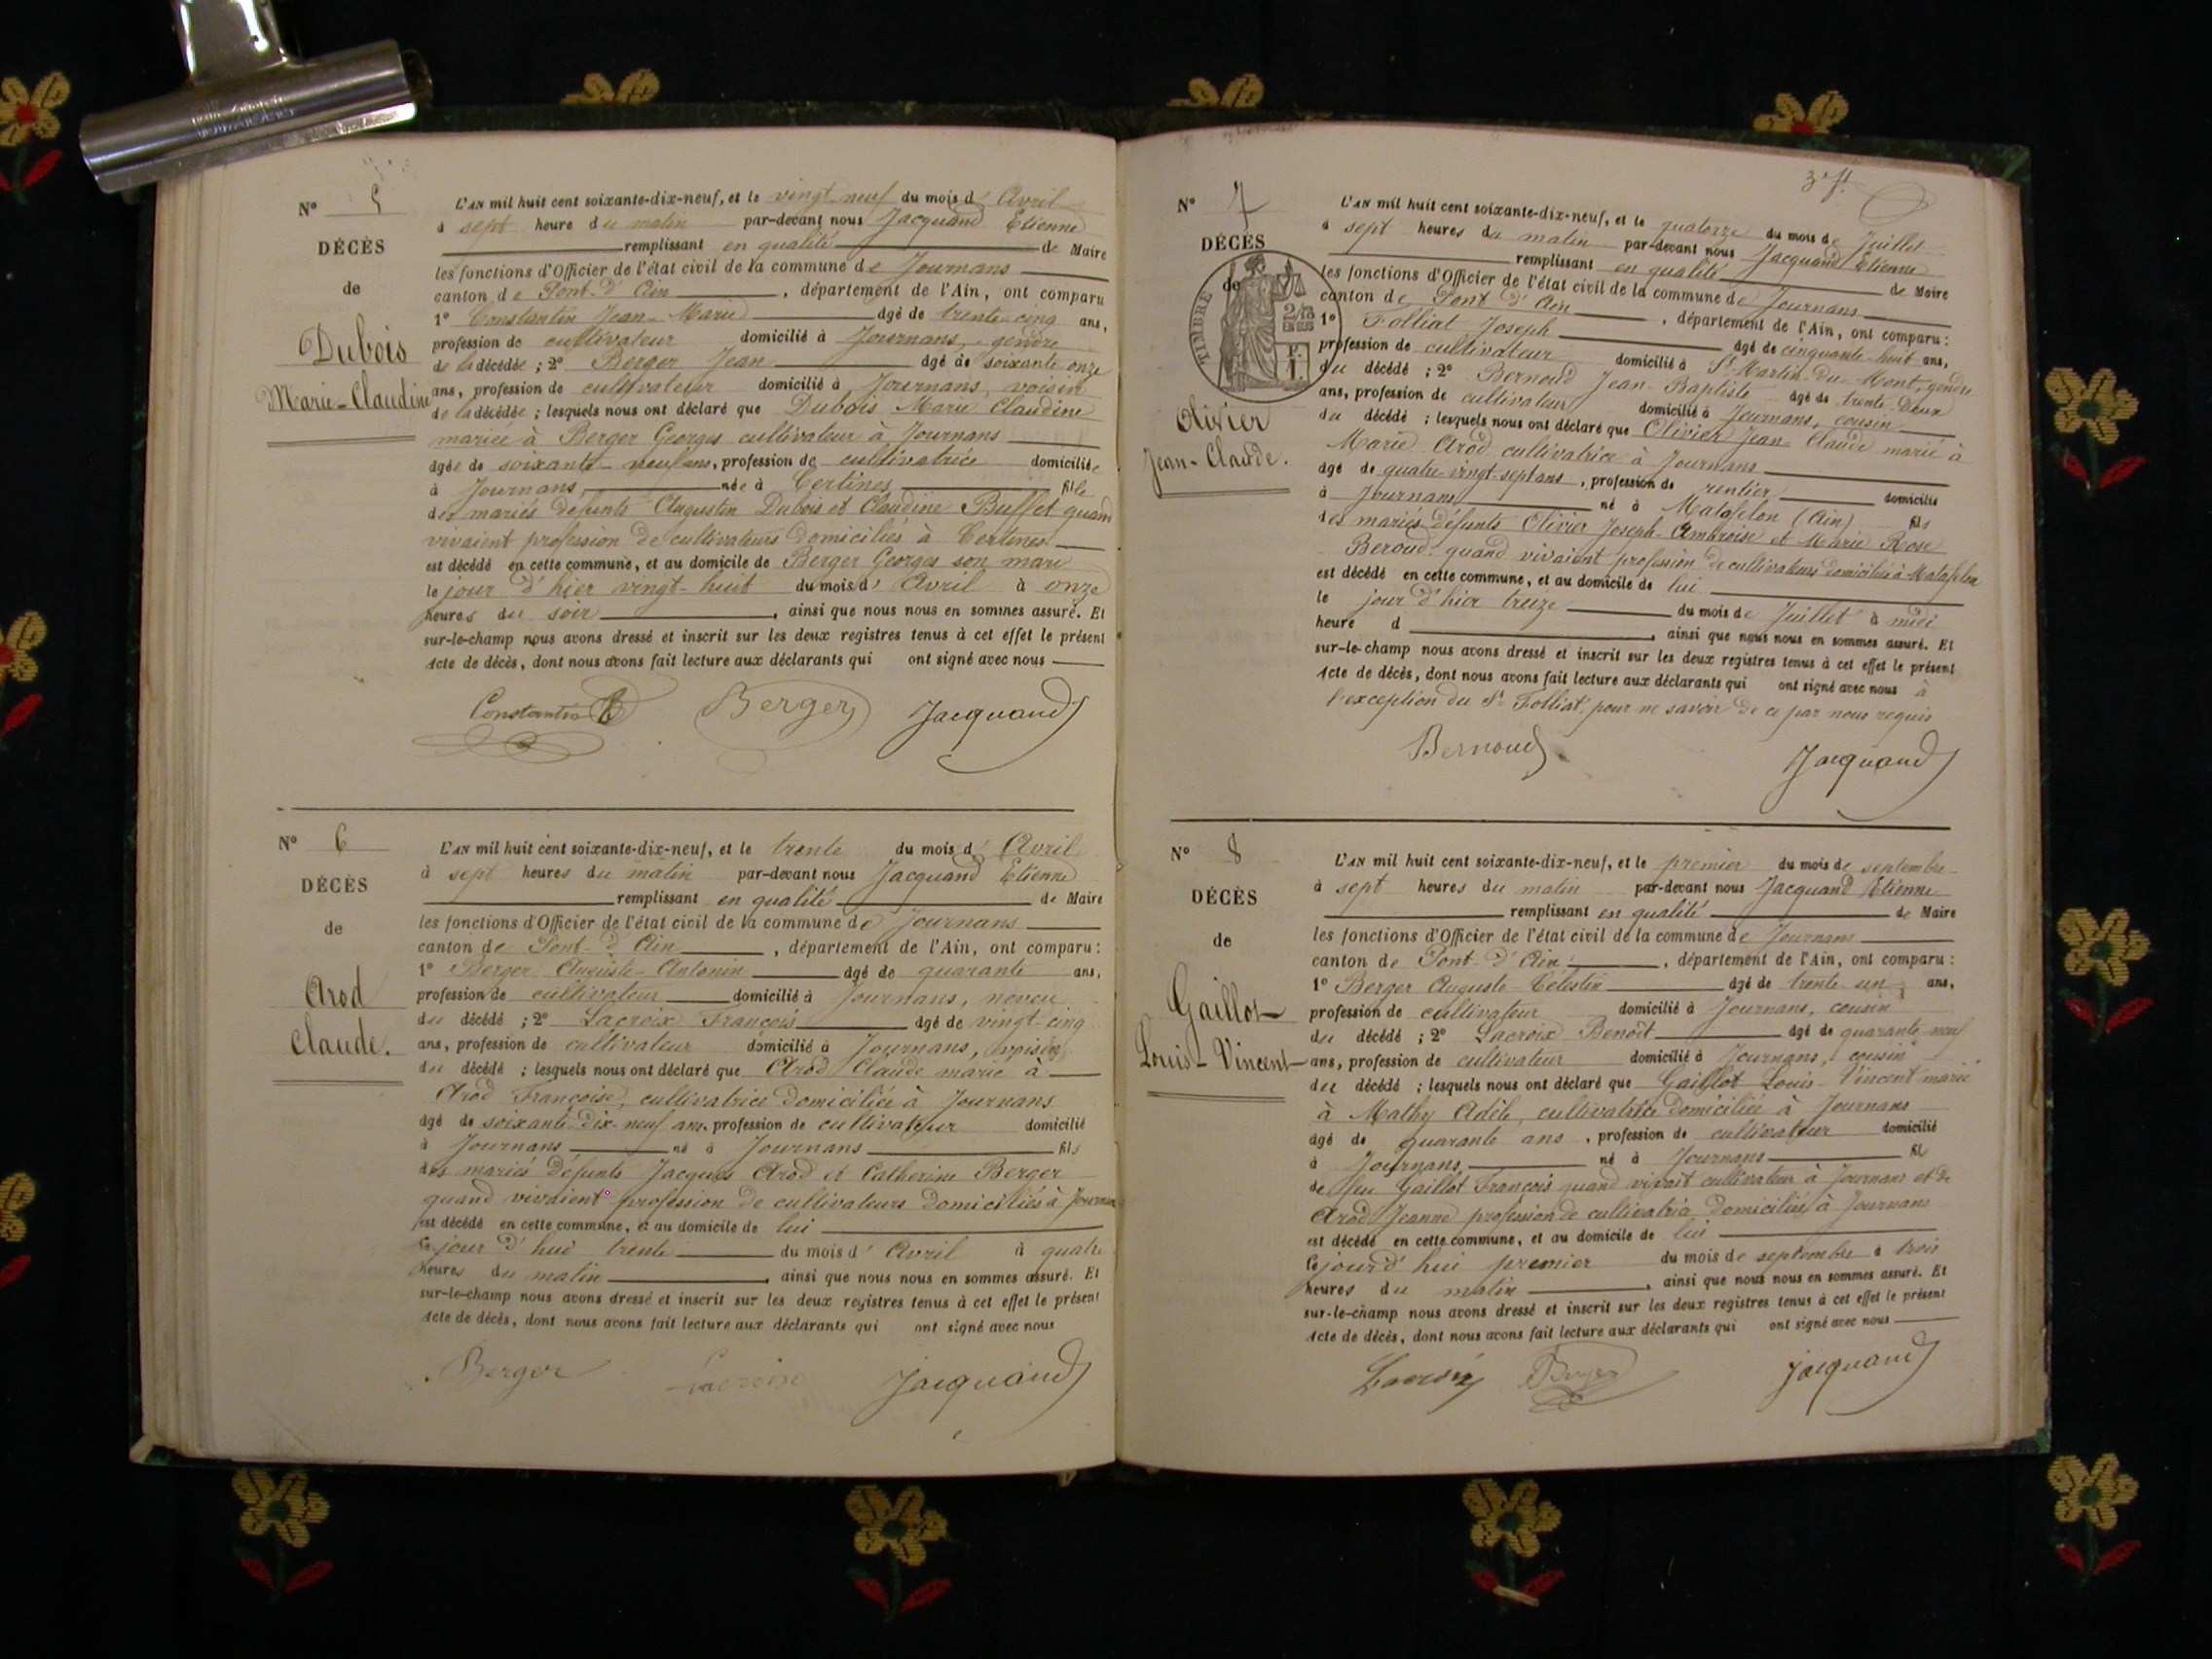 N° 5
DÉCÈS
de
Dubois
Marie-Claudine
L'AN mil huit cent soixante-dix-neuf, et le vingt-neuf du mois d' Avril
à sept heure du matin par-devant nous Jacquand Etienne
remplissant en qualité de Maire
les fonctions d'Officier de l'état civil de la commune de Journans
canton de Pont-d'Ain, département de l'Ain, ont comparu
1° Constantin Jean-Marie âgé de trente-cinq ans,
profession de cultivateur domicilié à Journans, gendre
de la décédée ; 2° Berger Jean âgé de soixante onze
ans, profession de cultivateur domicilié à Journans, voisin
de la décédée ; lesquels nous ont déclaré que Dubois Marie Claudine
mariée à Berger Georges cultivateur à Journans
âgée de soixante-neuf ans, profession de cultivatrice domiciliée
à Journans, née à Certines fille
des mariés défunts Augustin Dubois et Claudine Buffet quand
vivaient profession de cultivateurs domiciliés à Certines
est décédé en cette commune, et au domicile de Berger Georges son mari
le jour d'hier vingt-huit du mois d' Avril à onze
heures du soir, ainsi que nous nous en sommes assuré. Et
sur-le-champ nous avons dressé et inscrit sur les deux registres tenus à cet effet le présent
Acte de décès, dont nous avons fait lecture aux déclarants qui ont signé avec nous
Constantin Berger Jacquand
N° 6
DÉCÈS
de
Arod
Claude.
L'AN mil huit cent soixante-dix-neuf, et le trente du mois d' Avril
à sept heures du matin par-devant nous Jacquand Etienne
remplissant en qualité de Maire
les fonctions d'Officier de l'état civil de la commune de Journans
canton de Pont-d'Ain, département de l'Ain, ont comparu :
1° Berger Auguste-Antonin âgé de quarante ans,
profession de cultivateur domicilié à Journans, neveu
du décédé ; 2° Lacroix François âgé de vingt-cinq
ans, profession de cultivateur domicilié à Journans, voisin
du décédé ; lesquels nous ont déclaré que Arod Claude marié à
Arod Françoise, cultivatrice domiciliée à Journans
âgé de soixante-dix-neuf ans, profession de cultivateur domicilié
à Journans, né à Journans fils
des mariés défunts Jacques Arod et Catherine Berger
quand vivaient profession de cultivateurs domiciliés à Journans
est décédé en cette commune, et au domicile de lui
ce jour d'hui trente du mois d' Avril à quatre
heures du matin, ainsi que nous nous en sommes assuré. Et
sur-le-champ nous avons dressé et inscrit sur les deux registres tenus à cet effet le présent
Acte de décès, dont nous avons fait lecture aux déclarants qui ont signé avec nous
Berger Lacroix Jacquand
3e ft
N° 7
DÉCÈS
de
TIMBRE
2/10 EN SUS
Olivier
Jean-Claude.
L'AN mil huit cent soixante-dix-neuf, et le quatorze du mois de Juillet
à sept heures du matin par-devant nous Jacquand Etienne
remplissant en qualité de Maire
les fonctions d'Officier de l'état civil de la commune de Journans
canton de Pont d'Ain, département de l'Ain, ont comparu :
1° Folliat Joseph âgé de cinquante-huit ans,
profession de cultivateur domicilié à St Martin-du-Mont, gendre
du décédé ; 2° Bernoud Jean-Baptiste âgé de trente-deux
ans, profession de cultivateur domicilié à Journans, cousin
du décédé ; lesquels nous ont déclaré que Olivier Jean-Claude marié à
Marie Arod cultivatrice à Journans
âgé de quatre-vingt-sept ans, profession de rentier domicilié
à Journans né à Matafelon (Ain) fils
des mariés défunts Olivier Joseph-Ambroise et Marie Rose
Beroud quand vivaient profession de cultivateurs domiciliés à Matafelon
est décédé en cette commune, et au domicile de lui
le jour d'hier treize du mois de Juillet à midi
heure d, ainsi que nous nous en sommes assuré. Et
sur-le-champ nous avons dressé et inscrit sur les deux registres tenus à cet effet le présent
Acte de décès, dont nous avons fait lecture aux déclarants qui ont signé avec nous à
l'exception du Sr Folliat, pour ne savoir de ce par nous requis
Bernoud Jacquand
N° 8
DÉCÈS
de
Gaillot
Louis-Vincent
L'AN mil huit cent soixante-dix-neuf, et le premier du mois de septembre
à sept heures du matin par-devant nous Jacquand Etienne
remplissant en qualité de Maire
les fonctions d'Officier de l'état civil de la commune de Journans
canton de Pont-d'Ain, département de l'Ain, ont comparu :
1° Berger Auguste-Célestin âgé de trente-un ans,
profession de cultivateur domicilié à Journans, cousin
du décédé ; 2° Lacroix Benoît âgé de quarante-neuf
ans, profession de cultivateur domicilié à Journans, cousin
du décédé ; lesquels nous ont déclaré que Gaillot Louis-Vincent marié
à Mathy Adèle, cultivatrice domiciliée à Journans
âgé de quarante ans, profession de cultivateur domicilié
à Journans, né à Journans fils
de feu Gaillot François quand vivait cultivateur à Journans et de
Arod Jeanne profession de cultivatrice domiciliée à Journans
est décédé en cette commune, et au domicile de lui
ce jourd'hui premier du mois de septembre à trois
heures du matin, ainsi que nous nous en sommes assuré. Et
sur-le-champ nous avons dressé et inscrit sur les deux registres tenus à cet effet le présent
Acte de décès, dont nous avons fait lecture aux déclarants qui ont signé avec nous
Lacroix Berger Jacquand